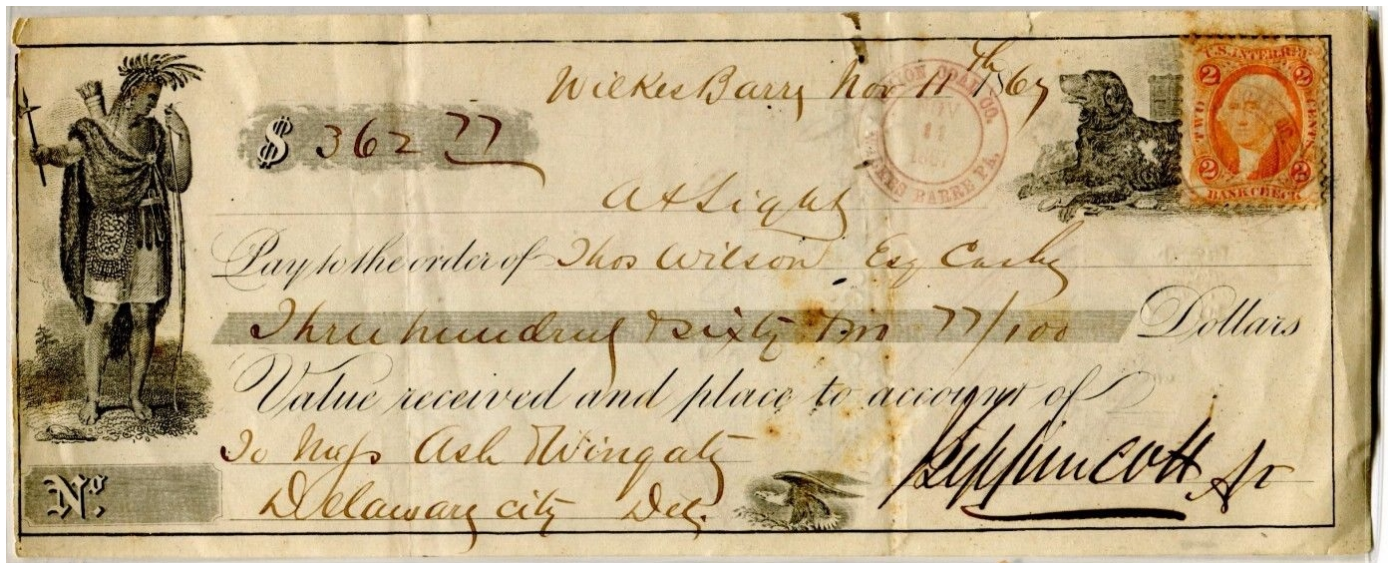 Wilkes Barre Nov 11th 1867
UNION COAL CO.
NOV
11
1867
WILKES BARRE PA.
U.S. INTER. REV.
2 2
TWO CENTS
2 2
BANK CHECK
$ 362 77
At Sight
Pay to the order of Thos Wilson Esq Cash
Three hundred & sixty two 77/100 Dollars
Value received and place to account of
To Mess Ash & Wingate
Lippincott Jr
Delaware City Del.
No.